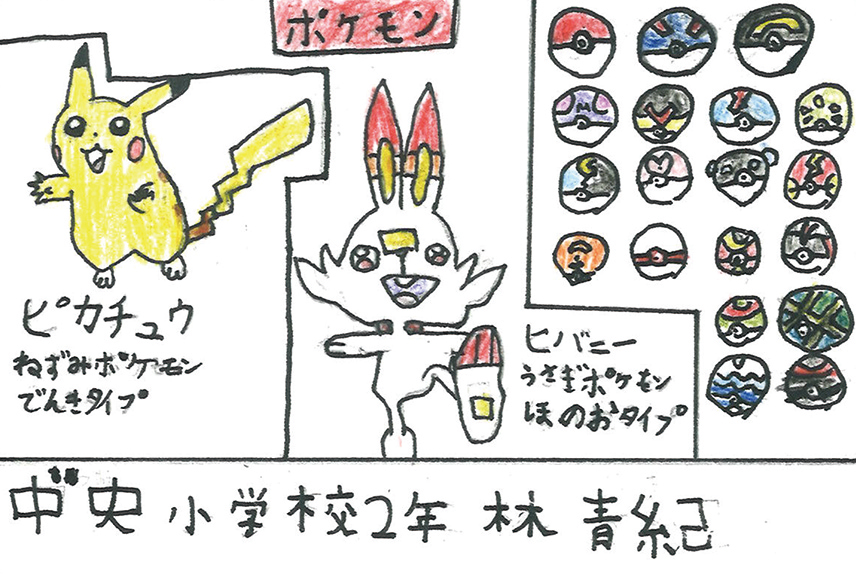 ポケモン
ピカチュウ
ねずみポケモン
でんきタイプ
ヒバニー
うさぎポケモン
ほのおタイプ
M
中央小学校2年 林 青紀